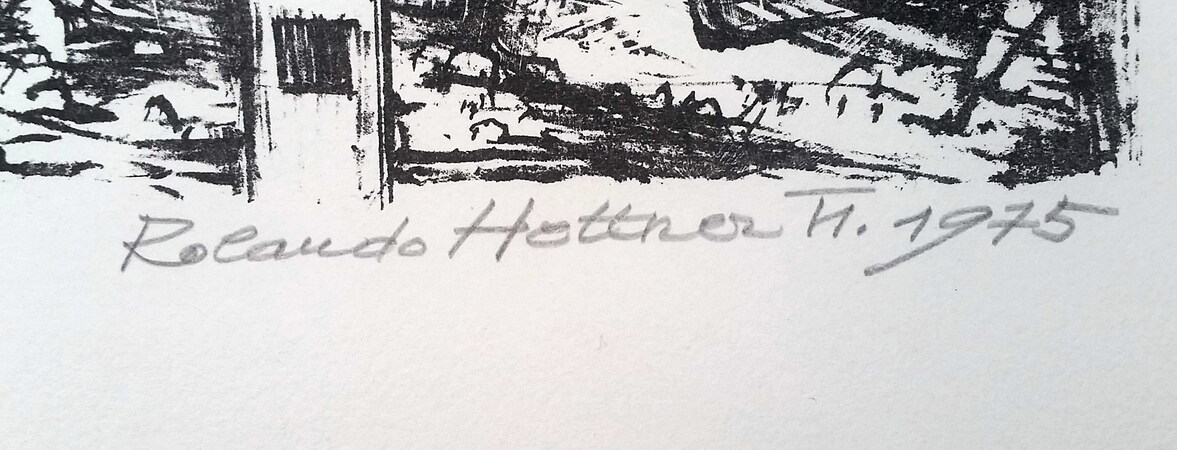 Rolando Hottner II. 1975